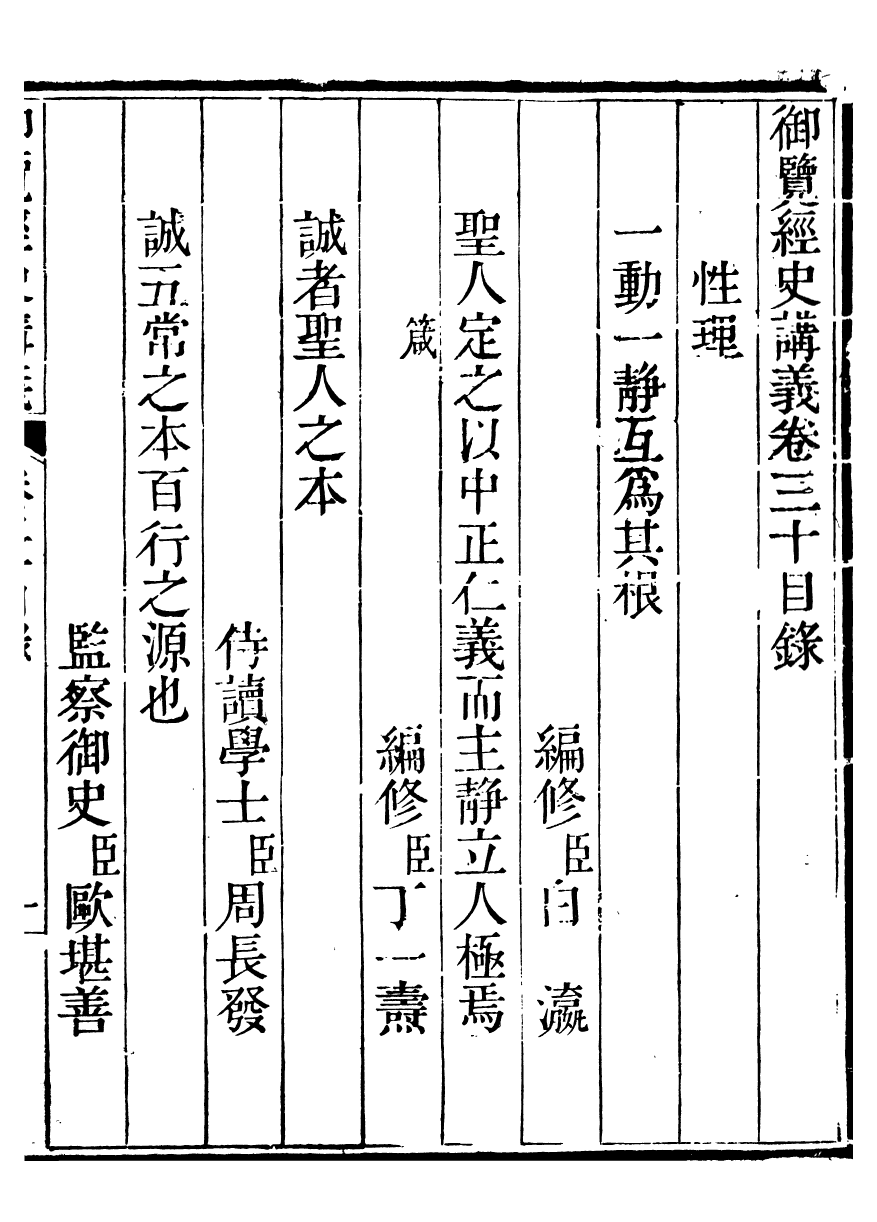 御覽經史講義卷三十目錄
性理
一動一靜互爲其根
編修臣白瀛
聖人定之以中正仁義而主靜立人極焉
箴
編修臣丁一燾
誠者聖人之本
侍讀學士臣周長發
誠五常之本百行之源也
監察御史臣歐堪善